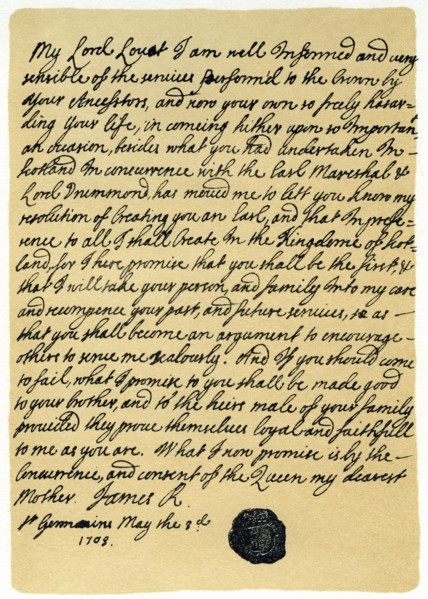 My Lord Lovat I am well Informed and very
sensible of the services perform'd to the Crown by
your Ancestors, and now your own so freely hasar-
ding your life, in comeing hither upon so Important
an occasion, besides what you had undertaken In-
Scotland In concurrence with the Earl Mareshal &
Lord Drummond has moved me to lett you know my
resolution of Creating you an Earl, and that In prefe-
rence to all I shall Create In the Kingdome of Scot-
land, for I here promise that you shall be the first, &
that I will take your person, and family Into my care
and recompence your past, and future services, so as —
that you shall become an argument to encourage —
others to serve me zealously. And If you should come
to fail, what I promise to you shall be made good
to your brother, and to the heirs male of your family
provided they prove themselves loyal and faithfull
to me as you are. What I now promise is by the —
Concurrence, and consent of the Queen my dearest
Mother. James R.
St Germains May the 3d
1703.